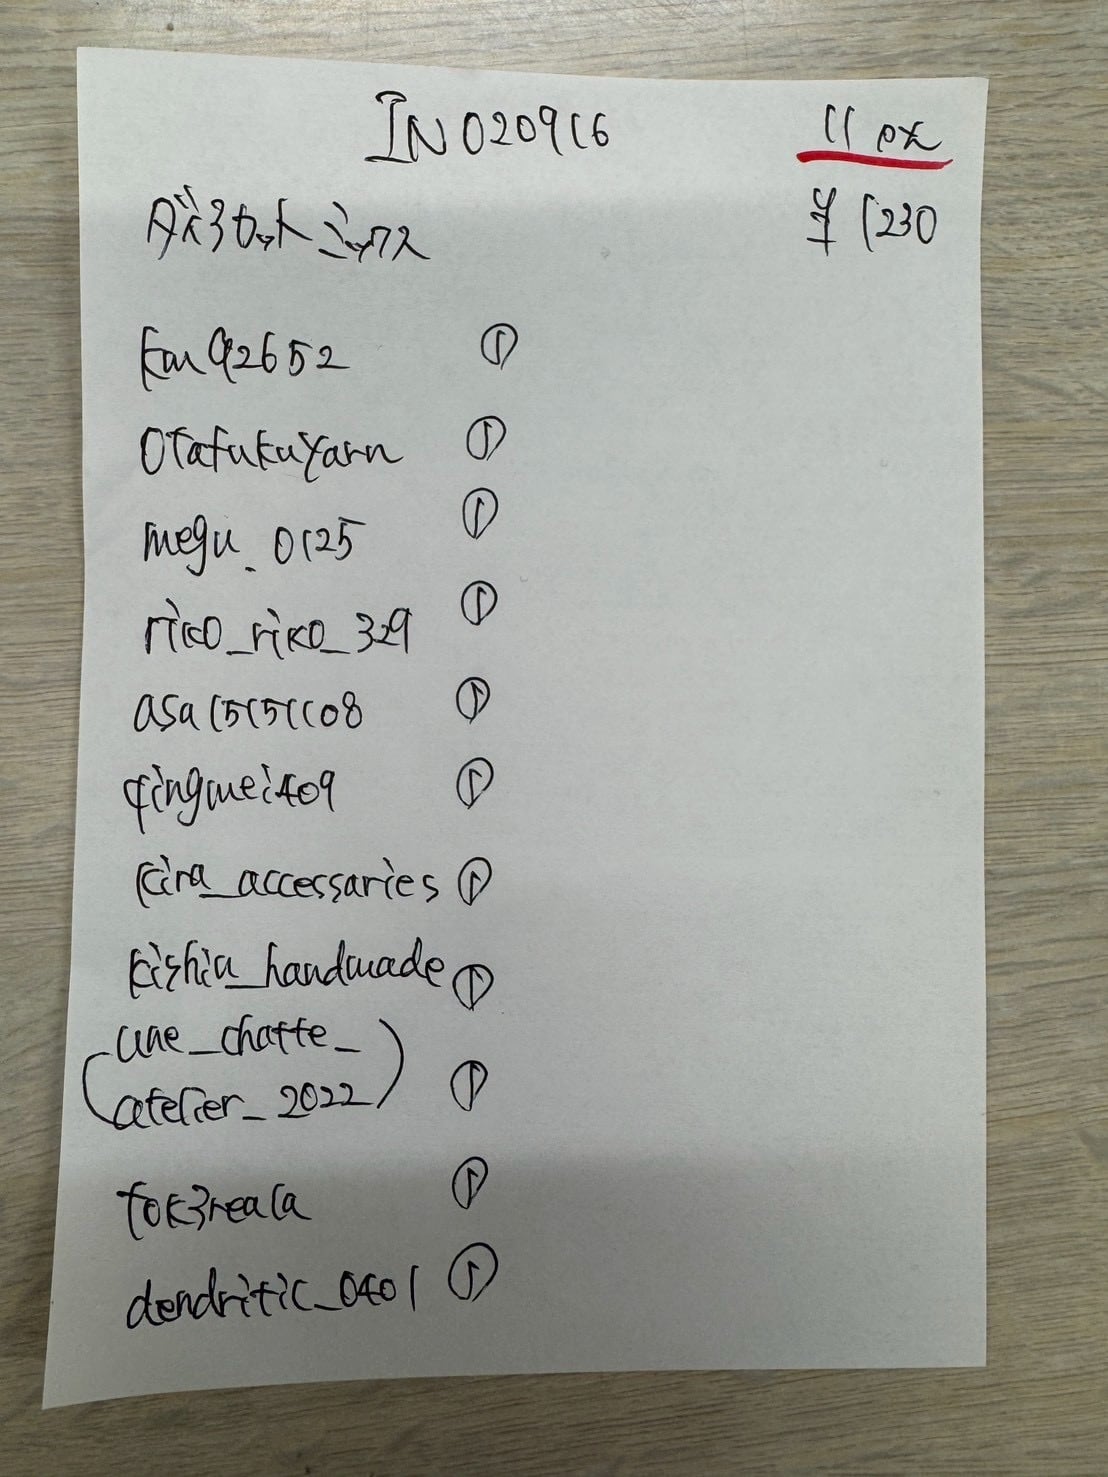 IN020916
11 px
ダイヤ3カットミックス
¥1230
km92652 ①
Otafukuyarn ①
megu_0125 ①
riko_riko_329 ①
asa15151108 ①
qingmei409 ①
kira_accessaries ①
kishiu_handmade ①
(une_chatte_
atelier_2022) ①
tok3reala ①
dendritic_0401 ①